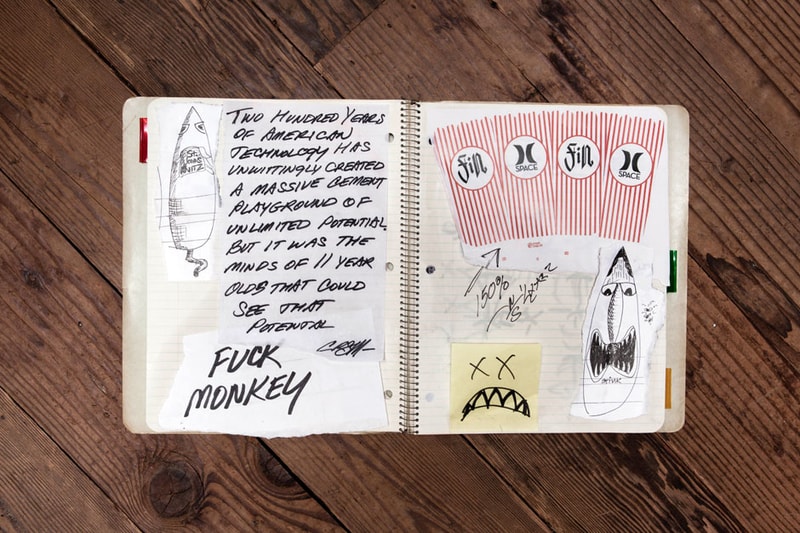 TWO HUNDRED YEARS
OF AMERICAN
TECHNOLOGY HAS
UNWITTINGLY CREATED
A MASSIVE CEMENT
PLAYGROUND OF
UNLIMITED POTENTIAL
BUT IT WAS THE
MINDS OF 11 YEAR
OLDS THAT COULD
SEE THAT
POTENTIAL
FUCK
MONKEY
FiN
SPACE
FiN
SPACE
150%